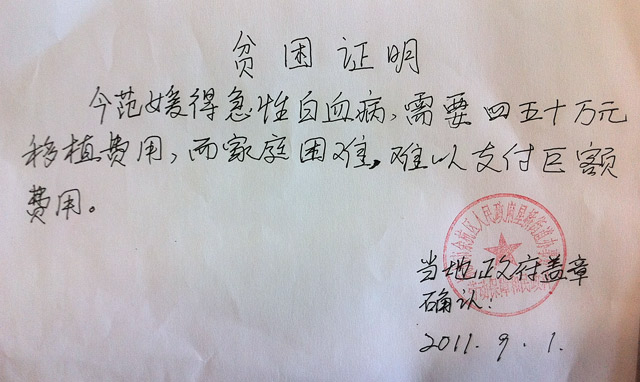 贫困证明
今范媛得急性白血病，需要四五十万元
移植费用，而家庭困难，难以支付巨额
费用。
当地政府盖章
确认！
2011.9.1.